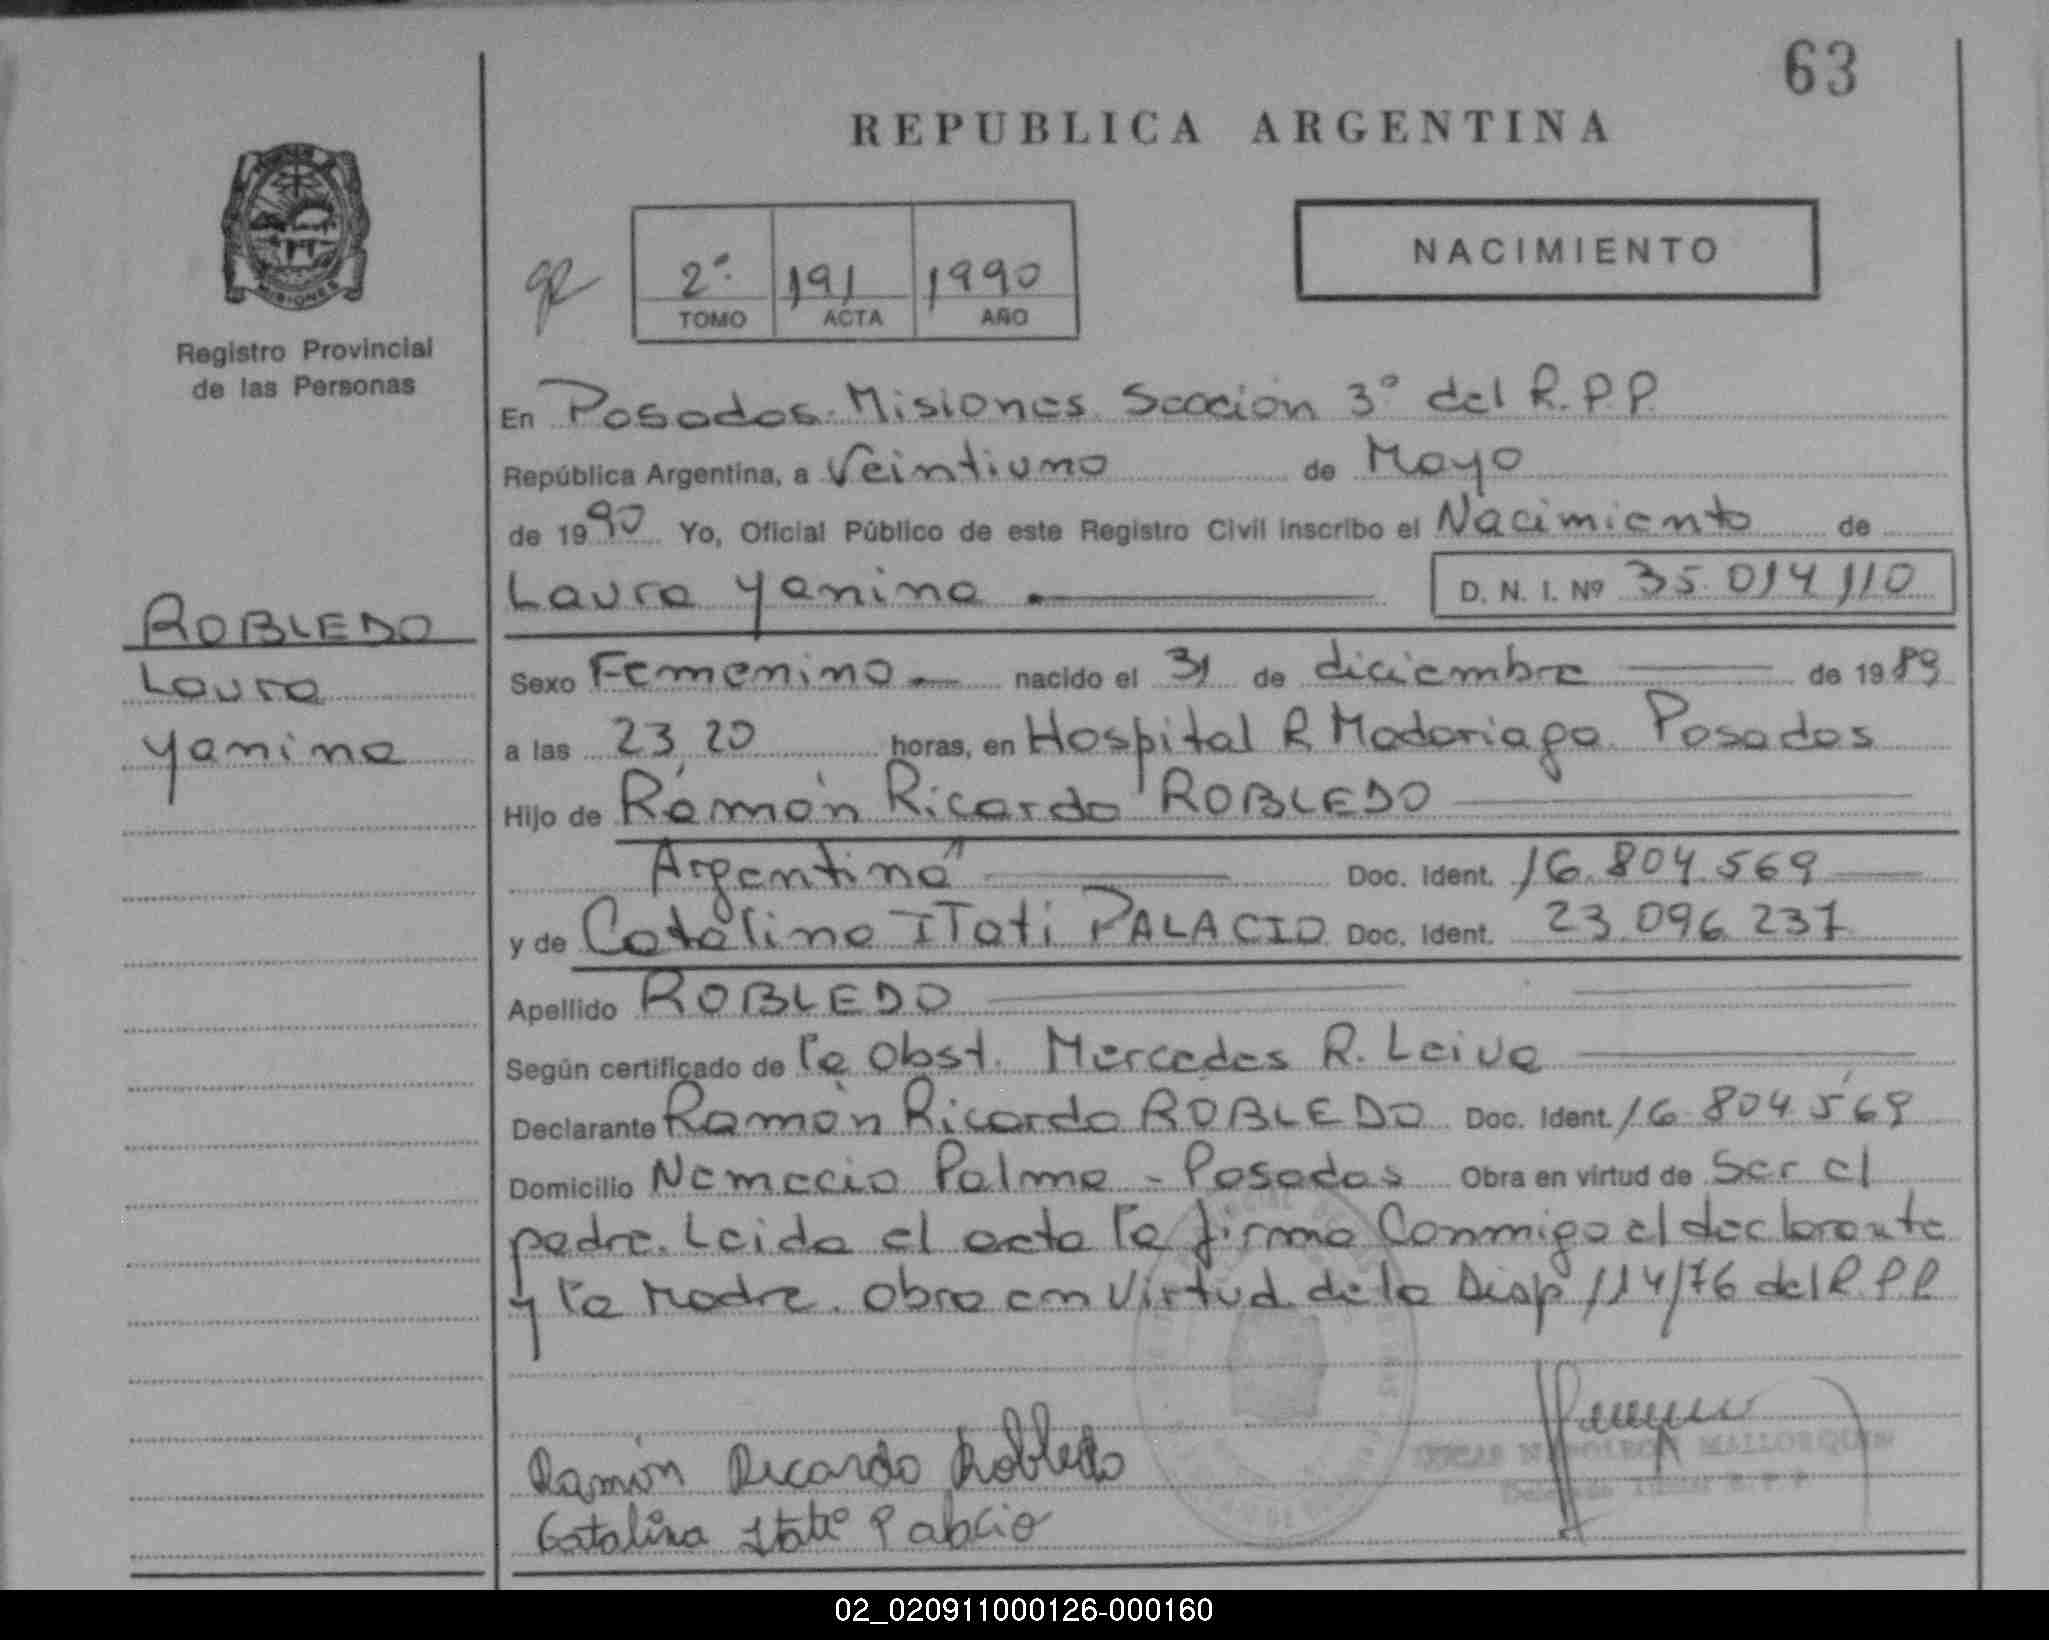 63
REPUBLICA ARGENTINA
MISIONES
Registro Provincial
de las Personas
2º 191 1990
TOMO ACTA AÑO
NACIMIENTO
En Posadas. Misiones Sección 3º del R.P.P.
República Argentina, a Veintiuno de Mayo
de 1990 Yo, Oficial Público de este Registro Civil inscribo el Nacimiento de
Laura Yanina
D. N. I. Nº 35.014.110
ROBLEDO
Laura
Yanina
Sexo Femenino nacido el 31 de diciembre de 1989
a las 23,20 horas, en Hospital R Madariaga Posadas
Hijo de Ramón Ricardo ROBLEDO
Argentina Doc. Ident. 16.804.569
y de Catalina ITati PALACIO Doc. Ident. 23.096.237
Apellido ROBLEDO
Según certificado de la Obst. Mercedes R. Leiva
Declarante Ramón Ricardo ROBLEDO Doc. Ident. 16.804.569
Domicilio Nemecio Palma - Posadas Obra en virtud de Ser el
padre. Leida el acta la firma Conmigo el declarante
y la Madre. Obra en Virtud de la Disp 114/76 del R.P.P.
Ramón Ricardo Robledo
Catalina Itati Palacio
NAPOLEON MALLORQUIN
02_020911000126-000160